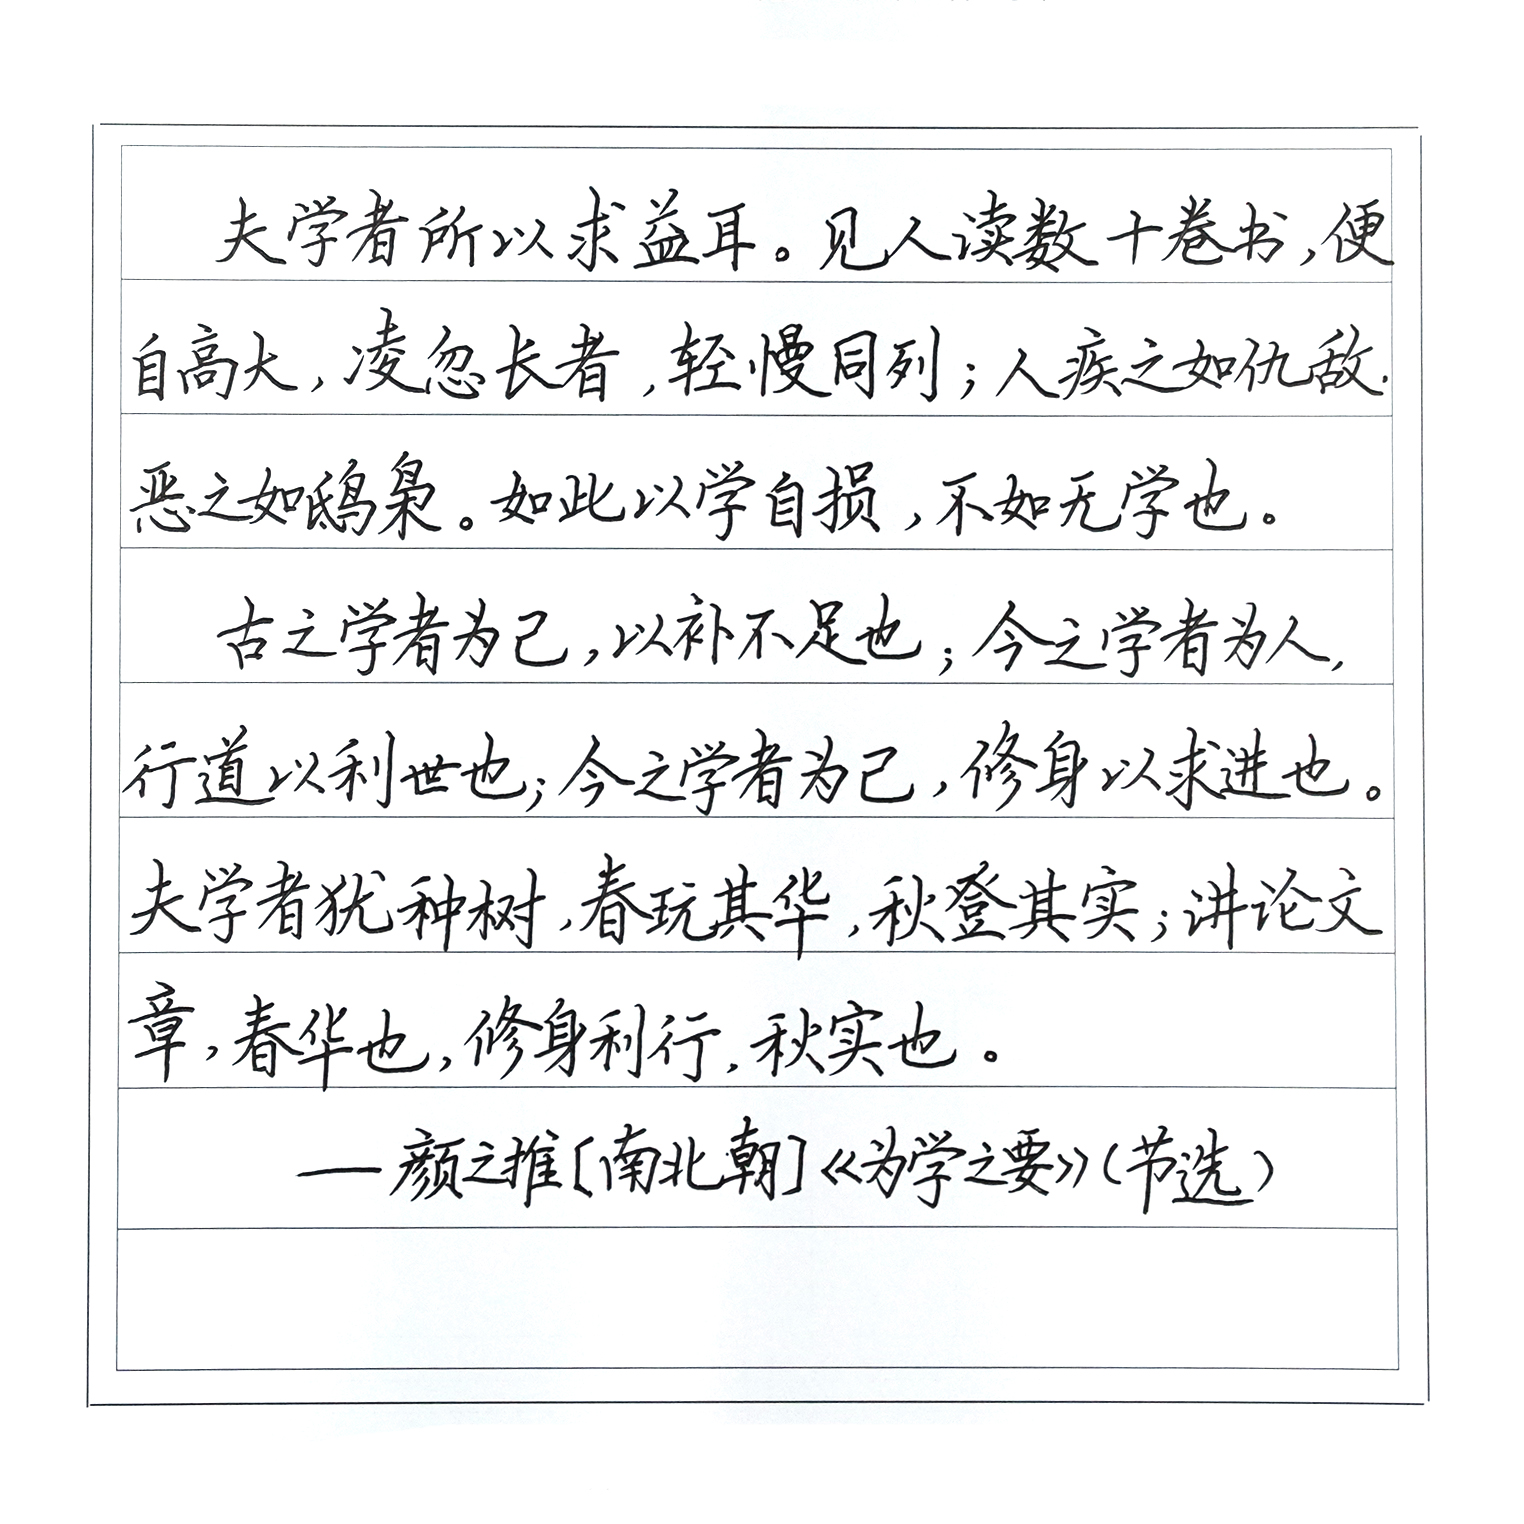 夫学者所以求益耳。见人读数十卷书,便
自高大,凌忽长者,轻慢同列;人疾之如仇敌.
恶之如鸱枭。如此以学自损,不如无学也。
古之学者为己,以补不足也;今之学者为人,
行道以利世也;今之学者为己,修身以求进也。
夫学者犹种树,春玩其华,秋登其实;讲论文
章,春华也,修身利行,秋实也。
——颜之推[南北朝]《为学之要》(节选)